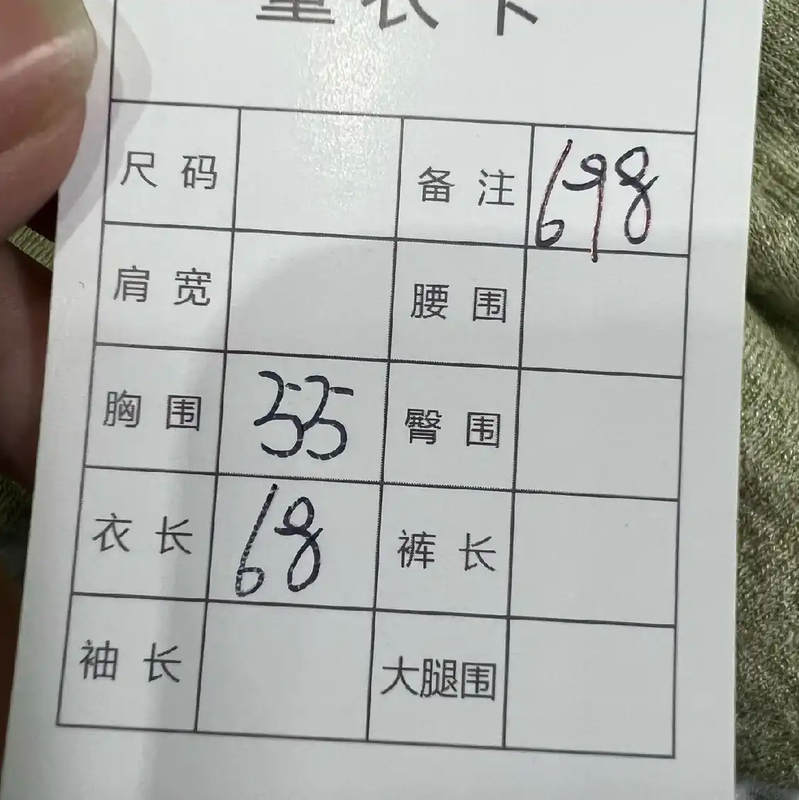 量衣卡
尺码 备注 698
肩宽 腰围
胸围 55 臀围
衣长 68 裤长
袖长 大腿围